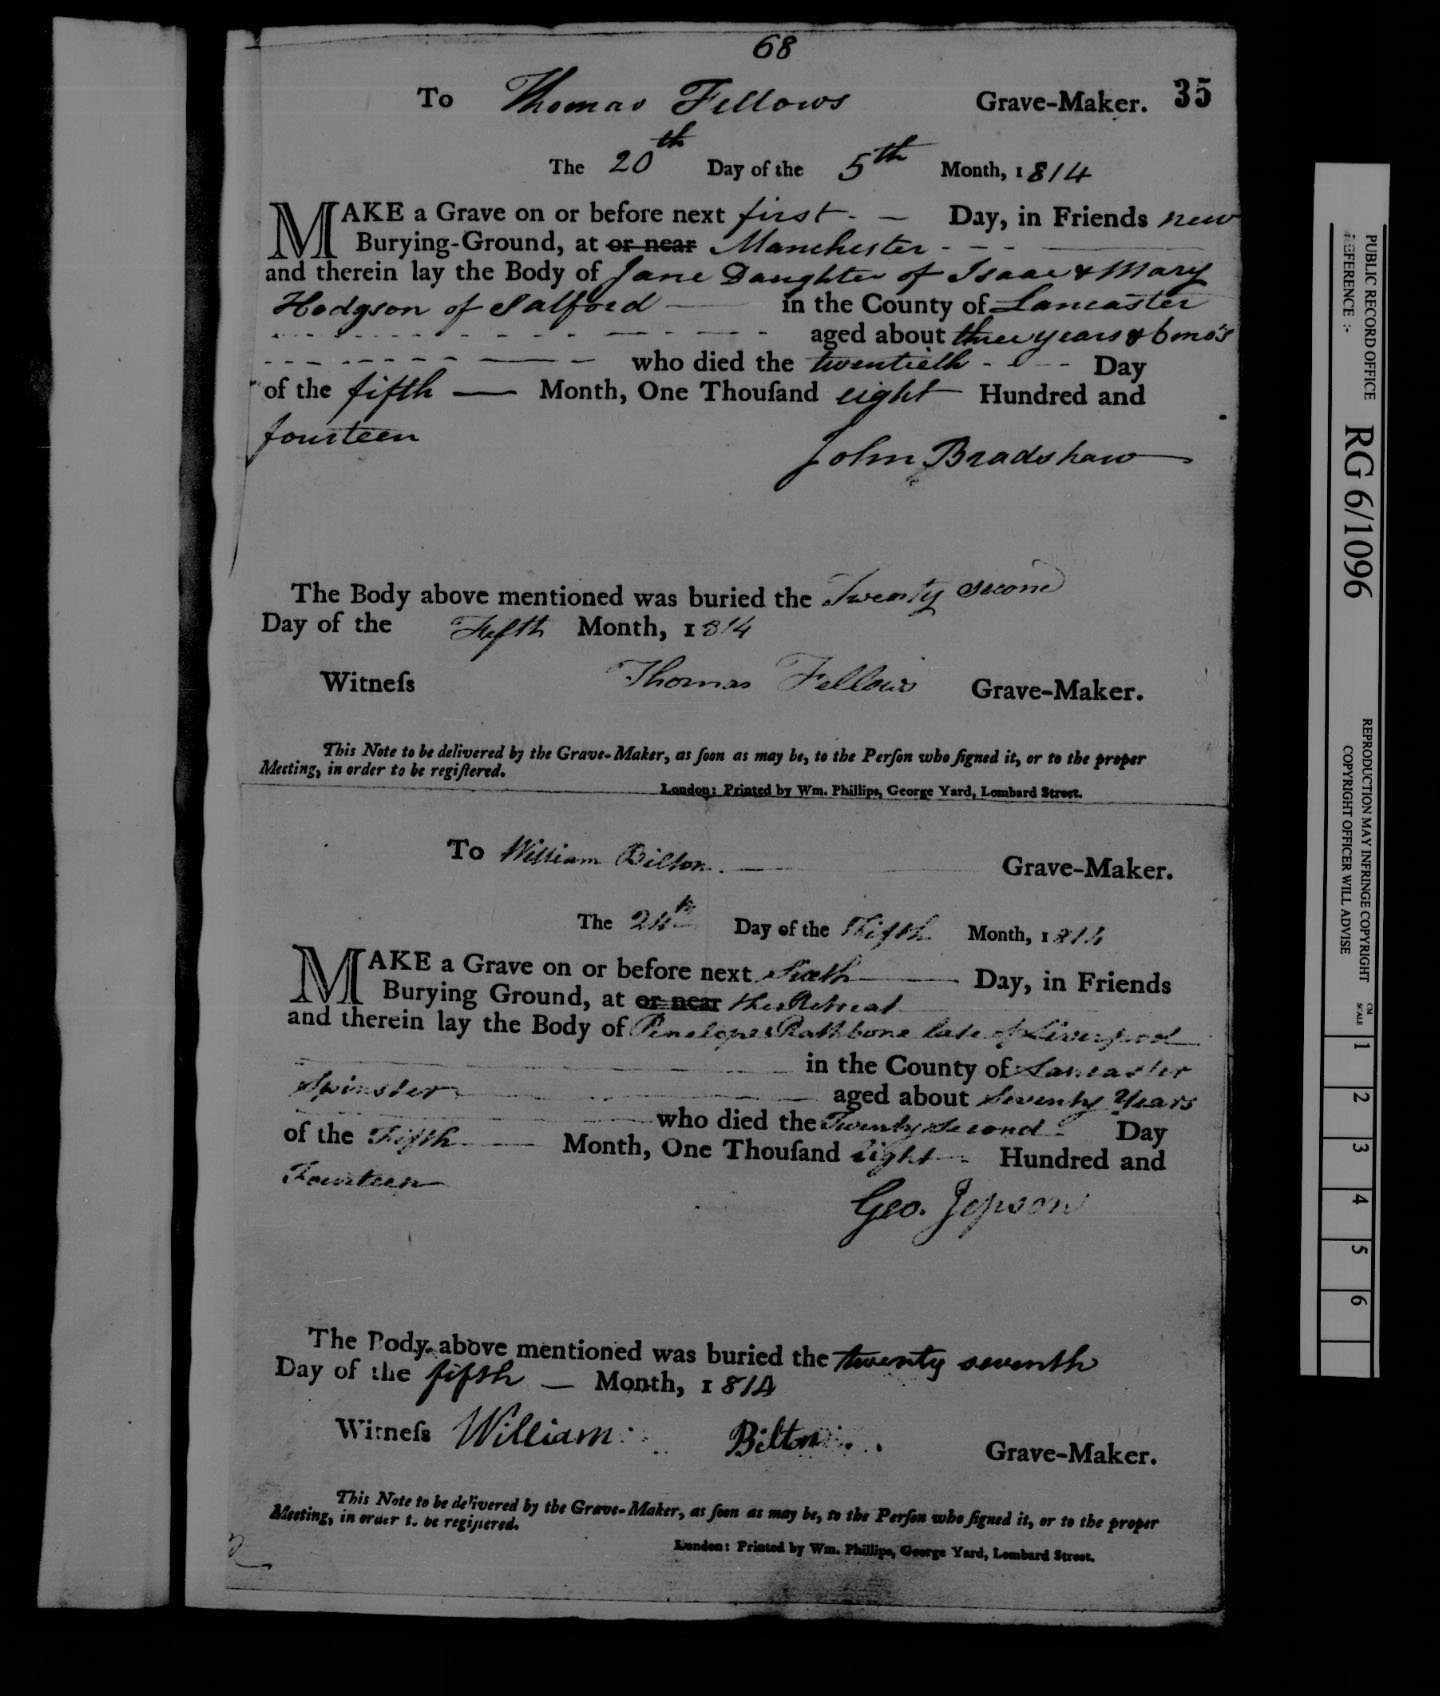 68
To Thomas Fellows Grave-Maker. 35
The 20th Day of the 5th Month, 1814
MAKE a Grave on or before next first - — Day, in Friends new
Burying-Ground, at or near Manchester - - - —
and therein lay the Body of Jane Daughter of Isaac & Mary
Hodgson of Salford — in the County of Lancaster
aged about three years & 6 mo's
who died the twentieth - - - Day
of the fifth — Month, One Thouſand eight Hundred and
fourteen
John Bradshaw
The Body above mentioned was buried the Twenty second
Day of the Fifth Month, 1814
Witneſs Thomas Fellows Grave-Maker.
This Note to be delivered by the Grave-Maker, as ſoon as may be, to the Perſon who ſigned it, or to the proper
Meeting, in order to be regiſtered.
London: Printed by Wm. Phillips, George Yard, Lombard Street.
To William Bilton. — Grave-Maker.
The 24th Day of the Fifth Month, 1814
MAKE a Grave on or before next Sixth — Day, in Friends
Burying Ground, at or near the Retreat
and therein lay the Body of Penelope Rathbone late of Liverpool
in the County of Lancaster
Spinster — aged about Seventy Years
who died the Twenty Second - Day
of the Fifth — Month, One Thouſand Eight - Hundred and
Fourteen
Geo. Jepson
The Body above mentioned was buried the twenty seventh
Day of the fifth — Month, 1814
Witneſs William Bilton Grave-Maker.
This Note to be delivered by the Grave-Maker, as ſoon as may be, to the Perſon who ſigned it, or to the proper
Meeting, in order to be regiſtered.
London: Printed by Wm. Phillips, George Yard, Lombard Street.
PUBLIC RECORD OFFICE
REFERENCE :-
RG 6/1096
REPRODUCTION MAY INFRINGE COPYRIGHT
COPYRIGHT OFFICER WILL ADVISE
CM
SCALE
1
2
3
4
5
6